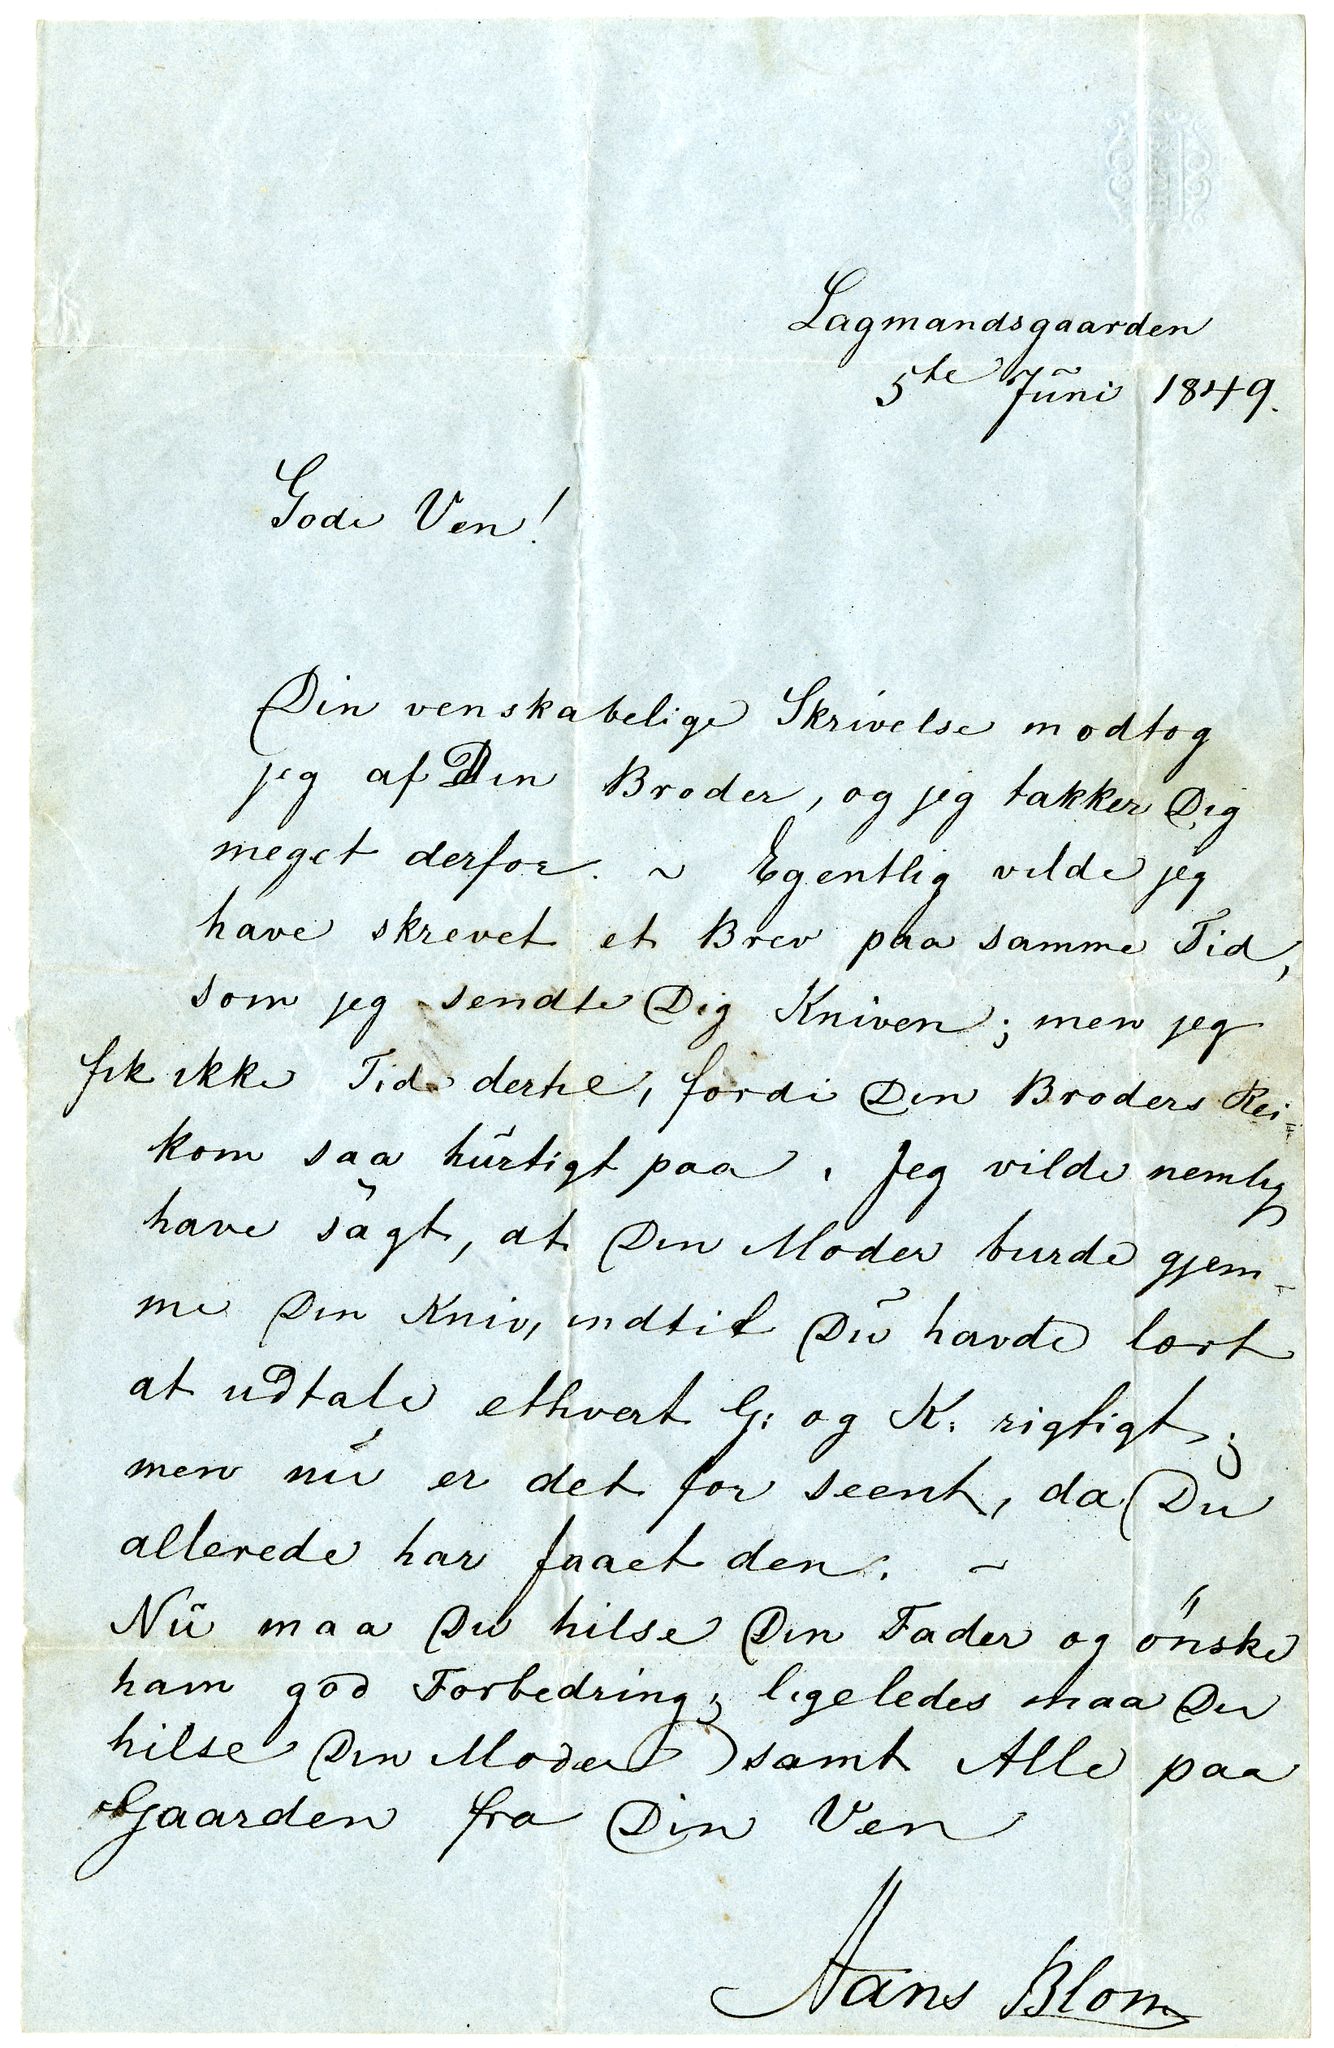 Lagmandsgaarden
5te Juni 1849.
Gode Ven!
Din venskabelige Skrivelse modtog
jeg af Din Broder, og jeg takker Dig
meget derfor. ~ Egentlig vilde jeg
have skrevet et Brev paa samme Tid,
som jeg sendte Dig Kniven; men jeg
fik ikke Tid dertil, fordi Din Broders Rei=
kom saa hurtigt paa. Jeg vilde nemlig
have sagt, at Din Moder burde gjem-
me Din Kniv, indtil Du havde lært
at udtale ethvert G: og K: rigtigt;
men nu er det for seent, da Du
allerede har faaet den. ~
Nu maa Du hilse Din Fader og önske
ham god Forbedring; ligeledes maa Du
hilse Din Moder samt Alle paa
Gaarden fra Din Ven
Hans Blom